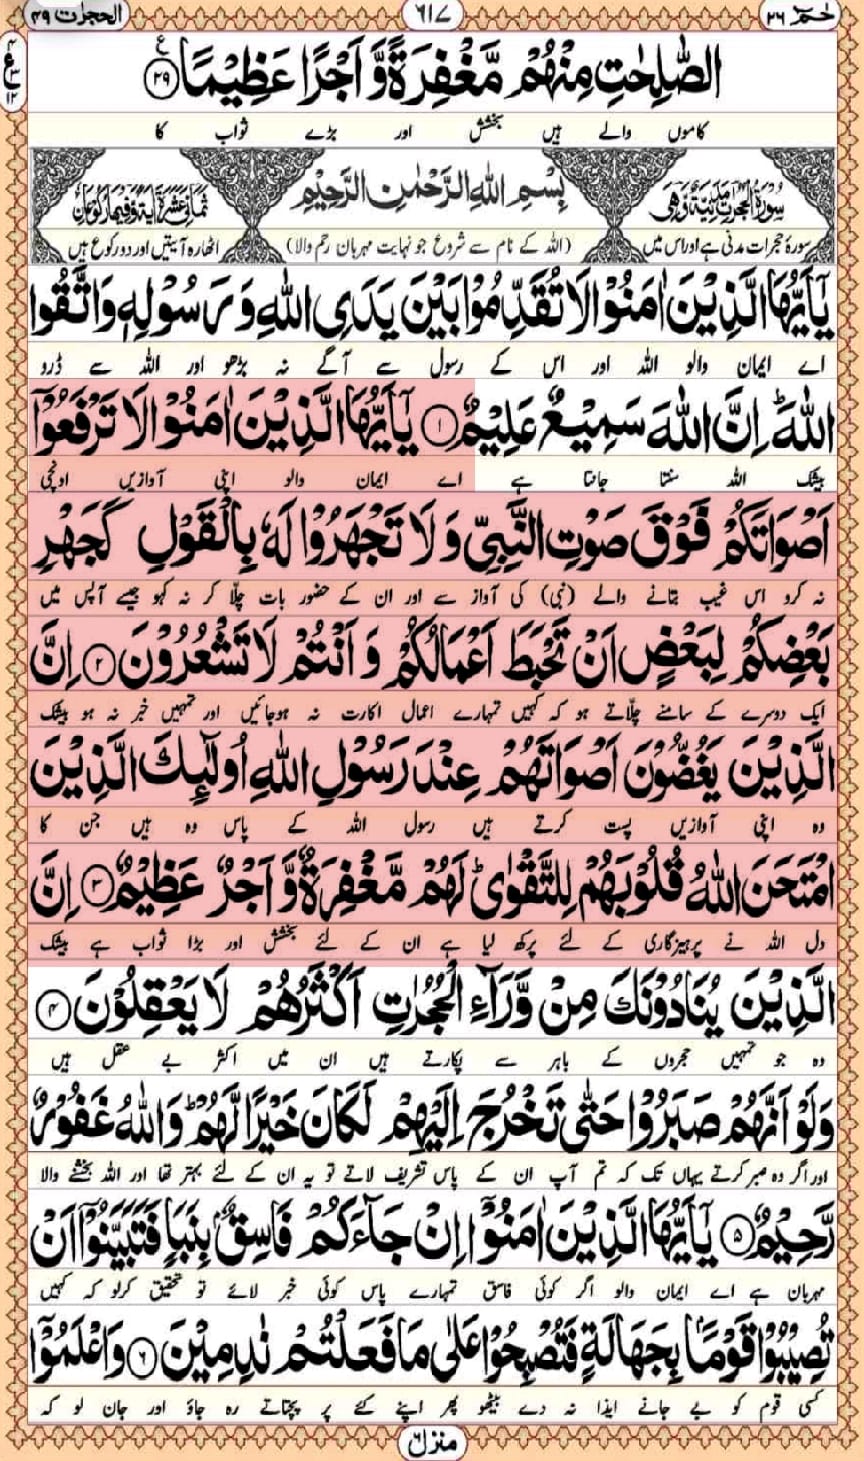 حٰمٓ ٢٦
٦١٧
الحجرات ٤٩
الصّٰلِحٰتِ مِنْهُمْ مَّغْفِرَةً وَّاَجْرًا عَظِيْمًا ۝٢٩
ع
٤
٣
١٢
کاموں والے ہیں بخشش اور بڑے ثواب کا
سُوْرَةُ الْحُجُرٰتِ مَدَنِيَّةٌ وَّهِيَ
بِسْمِ اللّٰهِ الرَّحْمٰنِ الرَّحِيْمِ
ثَمَانِيَ عَشْرَةَ اٰيَةً وَّفِيْهَا رُكُوْعَانِ
سورۂ حجرات مدنی ہے اور اس میں
(اللہ کے نام سے شروع جو نہایت مہربان رحم والا)
اٹھارہ آیتیں اور دو رکوع ہیں
يٰۤاَيُّهَا الَّذِيْنَ اٰمَنُوْا لَا تُقَدِّمُوْا بَيْنَ يَدَيِ اللّٰهِ وَ رَسُوْلِهٖ وَ اتَّقُوا
اے ایمان والو اللہ اور اس کے رسول سے آگے نہ بڑھو اور اللہ سے ڈرو
اللّٰهَؕ اِنَّ اللّٰهَ سَمِيْعٌ عَلِيْمٌ ۝١ يٰۤاَيُّهَا الَّذِيْنَ اٰمَنُوْا لَا تَرْفَعُوْۤا
بیشک اللہ سنتا جانتا ہے اے ایمان والو اپنی آوازیں اونچی
اَصْوَاتَكُمْ فَوْقَ صَوْتِ النَّبِيِّ وَ لَا تَجْهَرُوْا لَهٗ بِالْقَوْلِ كَجَهْرِ
نہ کرو اس غیب بتانے والے (نبی) کی آواز سے اور ان کے حضور بات چلّا کر نہ کہو جیسے آپس میں
بَعْضِكُمْ لِبَعْضٍ اَنْ تَحْبَطَ اَعْمَالُكُمْ وَ اَنْتُمْ لَا تَشْعُرُوْنَ ۝٢ اِنَّ
ایک دوسرے کے سامنے چلّاتے ہو کہ کہیں تمہارے اعمال اکارت نہ ہوجائیں اور تمہیں خبر نہ ہو بیشک
الَّذِيْنَ يَغُضُّوْنَ اَصْوَاتَهُمْ عِنْدَ رَسُوْلِ اللّٰهِ اُولٰٓئِكَ الَّذِيْنَ
وہ اپنی آوازیں پست کرتے ہیں رسول اللہ کے پاس وہ ہیں جن کا
امْتَحَنَ اللّٰهُ قُلُوْبَهُمْ لِلتَّقْوٰىؕ لَهُمْ مَّغْفِرَةٌ وَّ اَجْرٌ عَظِيْمٌ ۝٣ اِنَّ
دل اللہ نے پرہیزگاری کے لئے پرکھ لیا ہے ان کے لئے بخشش اور بڑا ثواب ہے بیشک
الَّذِيْنَ يُنَادُوْنَكَ مِنْ وَّرَآءِ الْحُجُرٰتِ اَكْثَرُهُمْ لَا يَعْقِلُوْنَ ۝٤
وہ جو تمہیں حجروں کے باہر سے پکارتے ہیں ان میں اکثر بے عقل ہیں
وَ لَوْ اَنَّهُمْ صَبَرُوْا حَتّٰى تَخْرُجَ اِلَيْهِمْ لَكَانَ خَيْرًا لَّهُمْؕ وَ اللّٰهُ غَفُوْرٌ
اور اگر وہ صبر کرتے یہاں تک کہ تم آپ ان کے پاس تشریف لاتے تو یہ ان کے لئے بہتر تھا اور اللہ بخشنے والا
رَّحِيْمٌ ۝٥ يٰۤاَيُّهَا الَّذِيْنَ اٰمَنُوْۤا اِنْ جَآءَكُمْ فَاسِقٌۢ بِنَبَاٍ فَتَبَيَّنُوْۤا اَنْ
مہربان ہے اے ایمان والو اگر کوئی فاسق تمہارے پاس کوئی خبر لائے تو تحقیق کرلو کہ کہیں
تُصِيْبُوْا قَوْمًۢا بِجَهَالَةٍ فَتُصْبِحُوْا عَلٰى مَا فَعَلْتُمْ نٰدِمِيْنَ ۝٦ وَ اعْلَمُوْۤا
کسی قوم کو بے جانے ایذا نہ دے بیٹھو پھر اپنے کئے پر پچتاتے رہ جاؤ اور جان لو کہ
منزل ٦